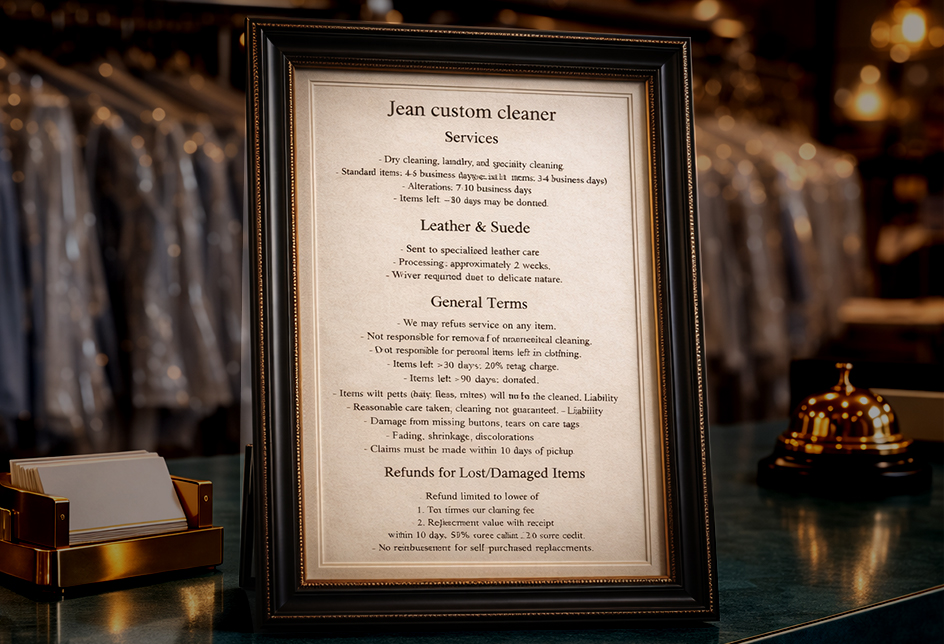 Jean custom cleaner
Services
- Dry cleaning, laundry, and specinty cleaning.
- Standard items: 4-6 business items: 3-4 business days)
- Alterations: 7-10 business days
- Items left –30 days may be donned.
Leather & Suede
- Sent to specialized leather care
- Processing: approximately 2 weeks,
- Wiver required duet to delicate nature.
General Terms
- We may refuis service on any item.
- Not responsible for removal of cleaning.
- Dot responsible for personal items left in clothing.
- Items left >30 days: 20% retag charge.
- Items left >90 days: donated.
- Items wilt petts (baty. fleas, mites) will the cleaned. Liability
- Reasonable care taken, cleaning not guaranteed. - Liability
- Damage from missing buttons, tears on care tags
- Fading, shrinkage, discolorations
- Claims must be made within 10 days of pickup
Refunds for Lost/Damaged Items
Refund limited to lower of
1. Ten times our claning fee
2. value with receipt
within 10 day. 50%
- No reimbusement for self purchased replaccments.